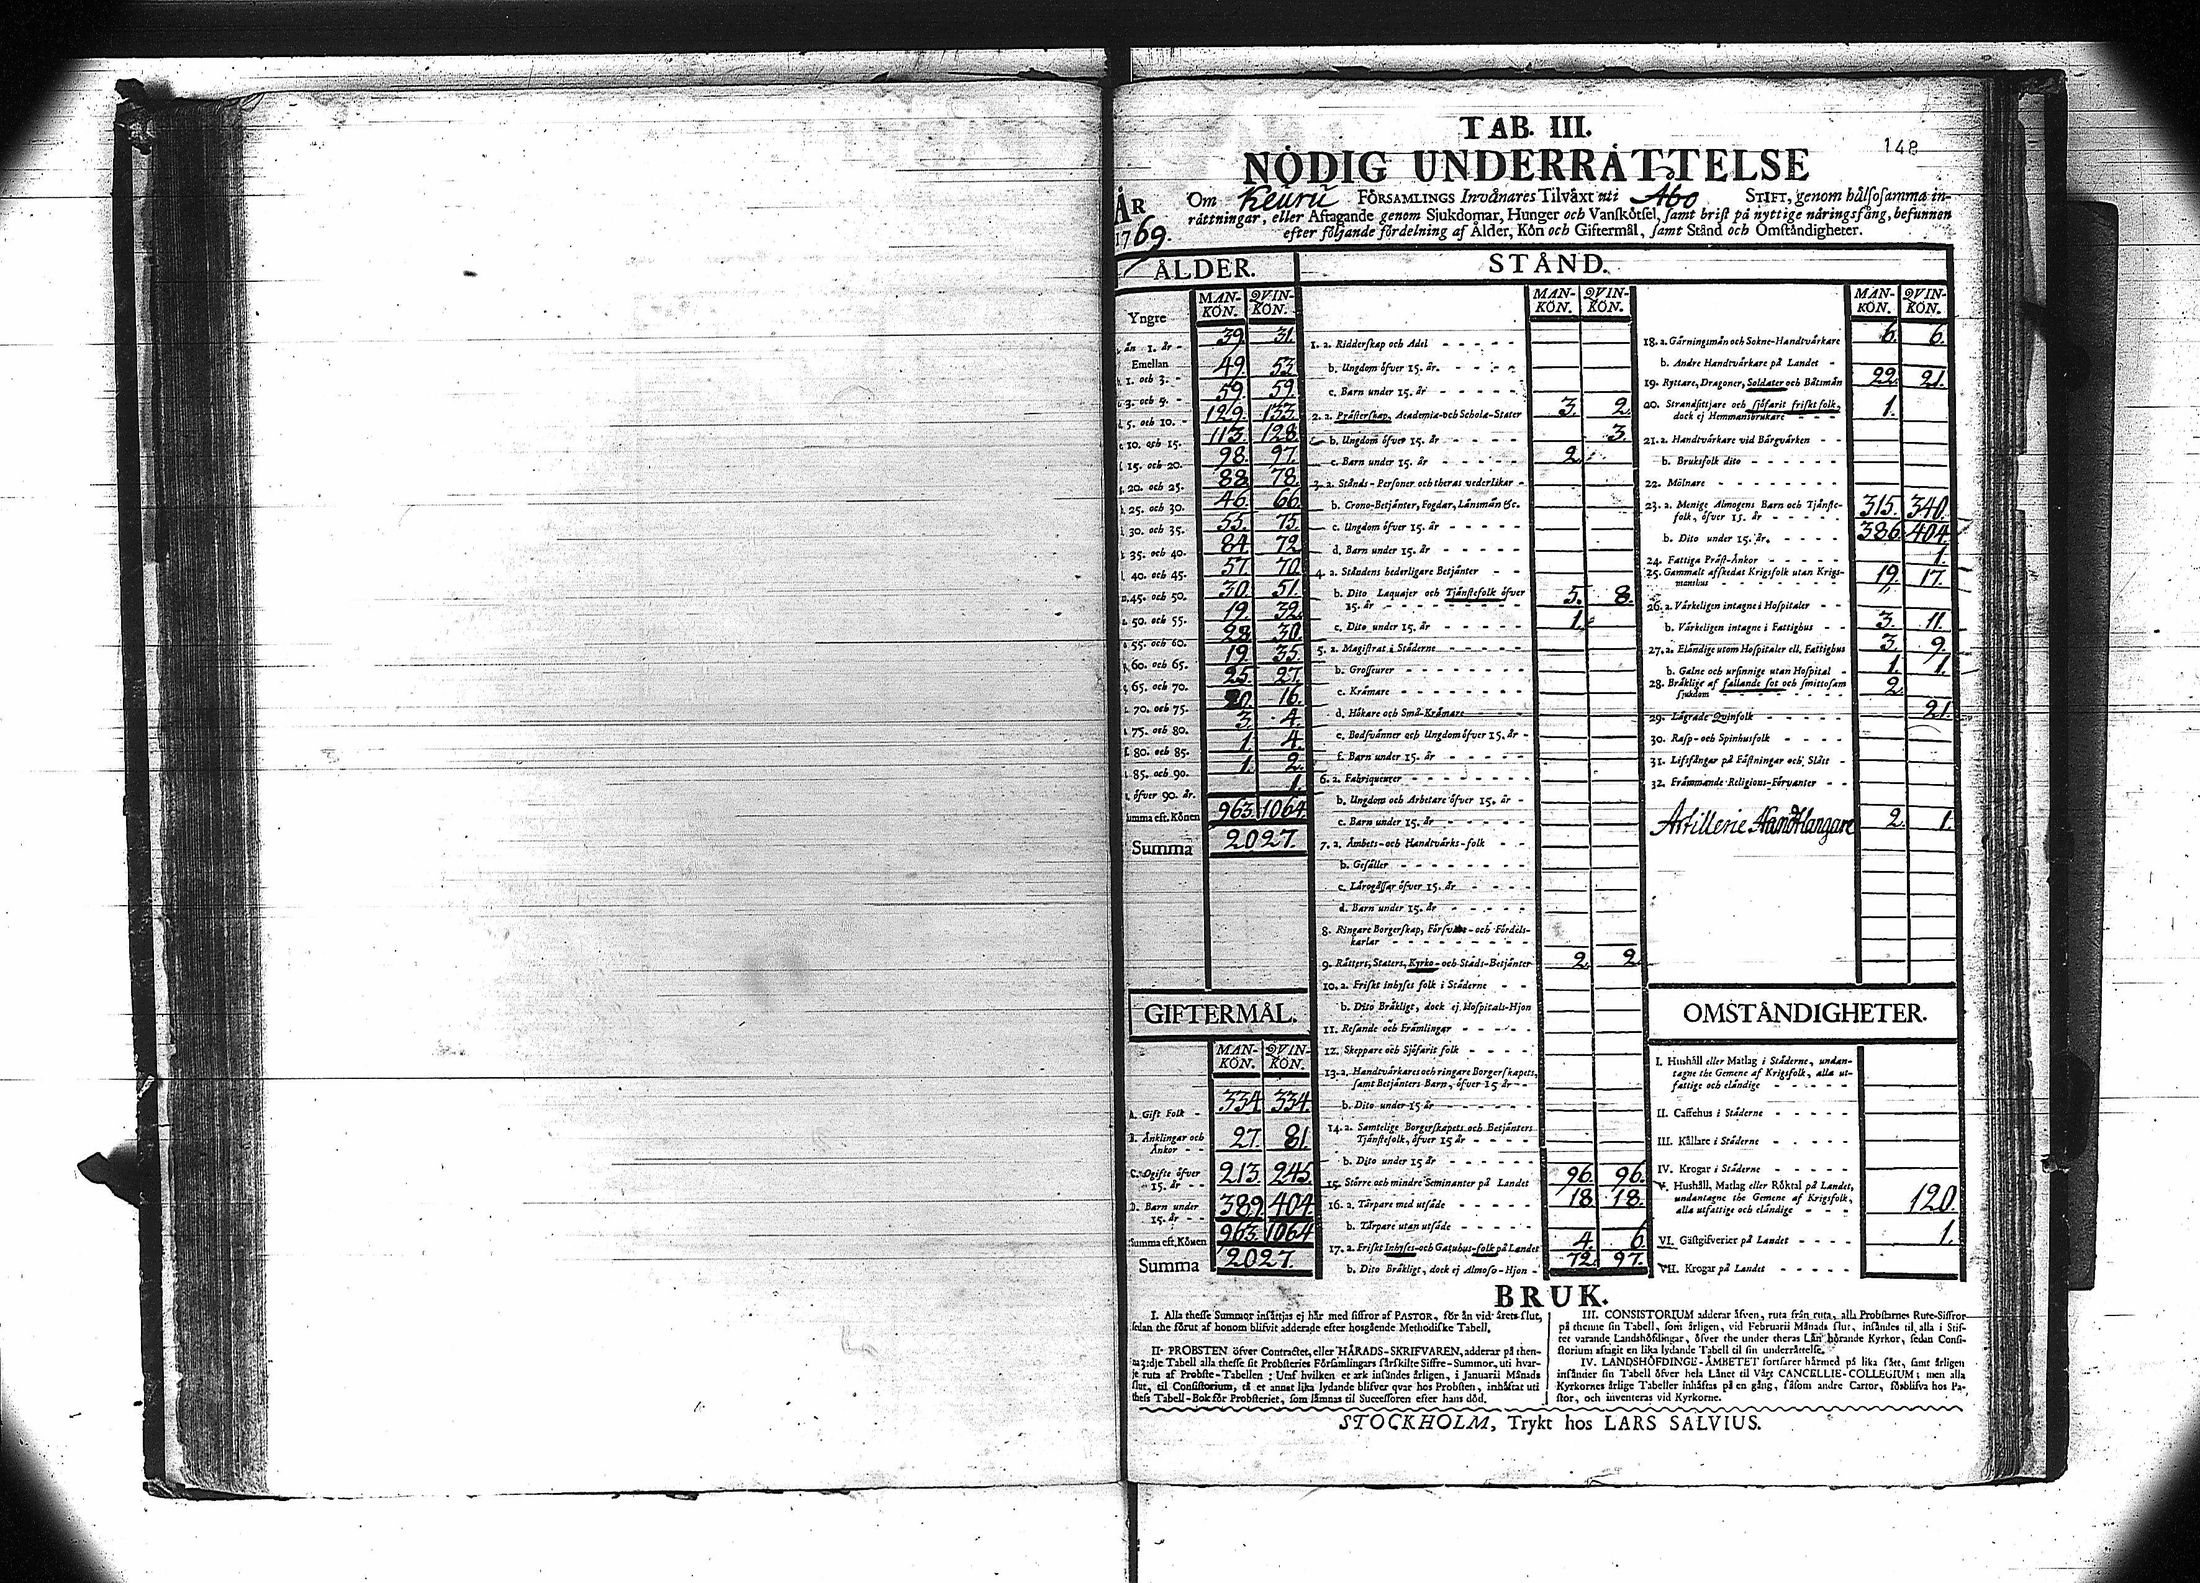 TAB. III.
148
NÖDIG UNDERRÅTTELSE
ÅR 1769.
Om Keuru FÖRSAMLINGS Invånares Tilväxt uti Åbo STIFT, genom hålsosamma in-
råttningar, eller Aftagande genom Sjukdomar, Hunger och Vanskötsel, samt brist på nyttige näringsfång, befunnen
efter följande fördelning af Ålder, Kön och Giftermål, samt Stånd och Omståndigheter.
ÅLDER.
MAN-KÖN. QVIN-KÖN.
Yngre
än 1. år - 39. 31.
Emellan
1. och 3. - 49. 53
3. och 5. - 59. 59.
5. och 10. - 129. 133.
10. och 15. 113. 128.
15. och 20. 98. 97.
20. och 25. 88. 78.
25. och 30. 46. 66.
30. och 35. 55. 75.
35. och 40. 84. 72
40. och 45. 57. 70.
45. och 50. 30. 51.
50. och 55. 19. 32.
55. och 60. 28. 30.
60. och 65. 19. 35.
65. och 70. 25. 27.
70. och 75. 20. 16.
75. och 80. 3. 4.
80. och 85. 1. 4.
85. och 90. 1. 2.
öfver 90. år. 1.
Summa eft. Könen 963. 1064.
Summa 2027.
GIFTERMÅL.
MAN-KÖN. QVIN-KÖN.
A. Gift Folk - 334. 334.
B. Änklingar och
Änkor - - 27. 81.
C. Ogifte öfver
15. år - - 213. 245.
D. Barn under
15. år - - 389. 404.
Summa eft. Könen 963. 1064
Summa 2027.
STÅND.
MAN-KÖN. QVIN-KÖN.
1. a. Ridderskap och Adel
b. Ungdom öfver 15. år.
c. Barn under 15. år
2. a. Prästerskap, Academiæ-och Scholæ-Stater 3. 2.
b. Ungdom öfver 15. år 3.
c. Barn under 15. år 2.
3. a. Stånds-Personer och theras vederlikar
b. Crono-Betjänter, Fogdar, Länsmän &c.
c. Ungdom öfver 15. år
d. Barn under 15. år
4. a. Ståndens hederligare Betjänter
b. Dito Laquajer och Tjänstefolk öfver
15. år 5. 8.
c. Dito under 15. år 1.
5. a. Magistrat i Städerne
b. Grosseurer
c. Krämare
d. Hökare och Små-Krämare
e. Bodsvänner och Ungdom öfver 15. år
f. Barn under 15. år
6. a. Fabriqueurer
b. Ungdom och Arbetare öfver 15. år
c. Barn under 15. år
7. a. Ämbets-och Handtvärks-folk
b. Gesäller
c. Lärogåssar öfver 15. år
d. Barn under 15. år
8. Ringare Borgerskap, Försvars-och Fördels-
karlar
9. Rätters, Staters, Kyrko-och Stads-Betjänter 2. 2.
10. a. Friskt inhyses folk i Städerne
b. Dito Bräkligt, dock ej Hospitals-Hjon
11. Resande och Främlingar
12. Skeppare och Sjöfarit folk
13. a. Handtvärkares och ringare Borgerskapets,
samt Betjänters Barn, öfver 15 år
b. Dito under 15 år
14. a. Samtelige Borgerskapets och Betjänters
Tjänstefolk, öfver 15 år
b. Dito under 15 år
15. Större och mindre Seminanter på Landet 96. 96.
16. a. Tårpare med utsäde 18. 18.
b. Tårpare utan utsäde
17. a. Friskt Inhyses-och Gatuhus-folk på Landet 4. 6.
b. Dito Bräkligt, dock ej Almoso-Hjon - 72. 97.
MAN-KÖN. QVIN-KÖN.
18. a. Gärningsmän och Sokne-Handtvärkare 6. 6.
b. Andre Handtvärkare på Landet
19. Ryttare, Dragoner, Soldater och Båtsmän 22. 21.
20. Strandsittjare och sjöfarit friskt folk,
dock ej Hemmansbrukare 1.
21. a. Handtvärkare vid Bärgvärken
b. Bruksfolk dito
22. Mölnare
23. a. Menige Almogens Barn och Tjänste-
folk, öfver 15. år 315. 340.
b. Dito under 15. år. 386. 404.
24. Fattiga Präst-Änkor 1.
25. Gammalt afskedat Krigsfolk utan Krigs-
manshus 19. 17.
26. a. Värkeligen intagne i Hospitaler
b. Värkeligen intagne i Fattighus 3. 11.
27. a. Eländige utom Hospitaler ell. Fattighus 3. 9.
b. Galne och ursinnige utan Hospital 1. 1.
28. Bräklige af fallande sot och smittosam
sjukdom 2.
29. Lägrade Qvinfolk 21.
30. Rasp-och Spinhusfolk
31. Lifsfångar på Fästningar och Slått
32. Främmande Religions-Förvanter
Artillerie Handtlangare 2. 1.
OMSTÅNDIGHETER.
I. Hushåll eller Matlag i Städerne, undan-
tagne the Gemene af Krigsfolk, alla ut-
fattige och eländige
II. Caffehus i Städerne
III. Källare i Städerne
IV. Krogar i Städerne
V. Hushåll, Matlag eller Röktal på Landet,
undantagne the Gemene af Krigsfolk,
alla utfattige och eländige 120.
VI. Gästgifverier på Landet 1.
VII. Krogar på Landet
BRUK.
I. Alla thesse Summor insättjas ej här med siffror af PASTOR, för än vid årets slut,
sedan the förut af honom blifvit adderade efter hosgående Methodiske Tabell.
II. PROBSTEN öfver Contractet, eller HÄRADS-SKRIFVAREN, adderar på then-
na 3:dje Tabell alla thesse sit Probsteries Församlingars särskilte Siffre-Summor, uti hvar-
je ruta af Probste-Tabellen: Utaf hvilken et ark insändes årligen, i Januarii Månads
slut, til Consistorium, tå et annat lika lydande blifver qvar hos Probsten, inhäftat uti
thess Tabell-Bok för Probsteriet, som lämnas til Successoren efter hans död.
III. CONSISTORIUM adderar äfven, ruta från ruta, alla Probstarnes Rute-Siffror
på thenne sin Tabell, som årligen, vid Februarii Månads slut, insändes til alla i Stif-
tet varande Landshöfdingar, öfver the under theras Län hörande Kyrkor, sedan Consi-
storium aftagit en lika lydande Tabell til sin underrättelse.
IV. LANDSHÖFDINGE-ÄMBETET fortfarer härmed på lika sätt, samt årligen
insänder sin Tabell öfver hela Länet til Vårt CANCELLIE-COLLEGIUM; men alla
Kyrkornes årlige Tabeller inhäftas på en gång, såsom andre Cartor, förblifva hos Pa-
stor, och inventeras vid Kyrkorne.
STOCKHOLM, Trykt hos LARS SALVIUS.